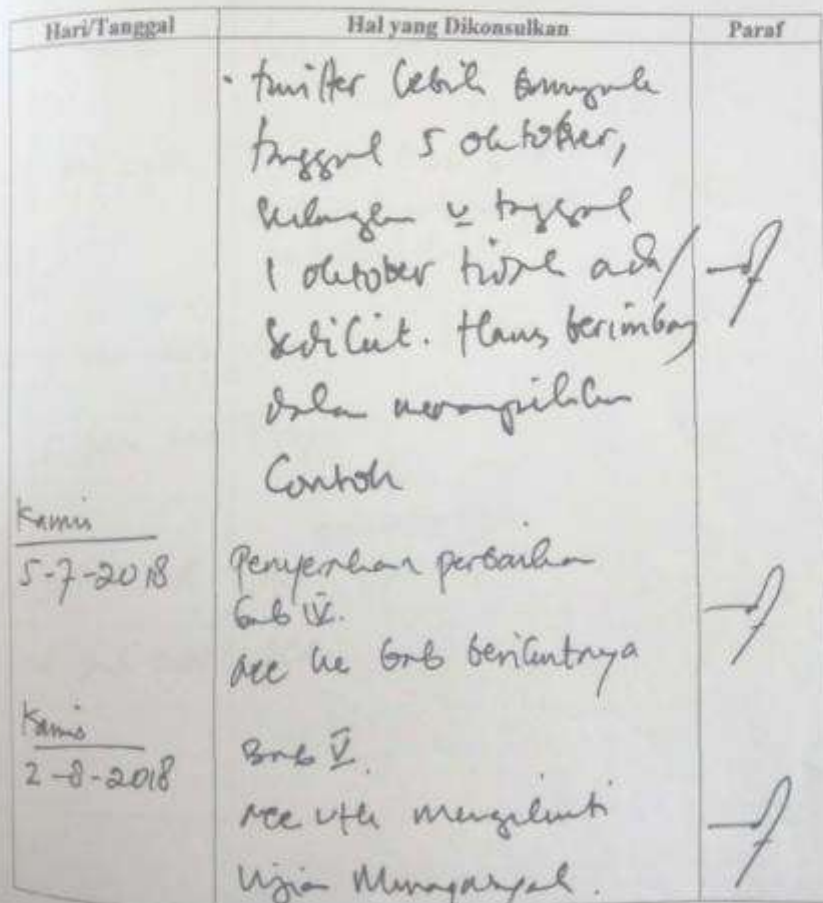 Hari/Tanggal Hal yang Dikonsulkan Paraf
· twitter lebih banyak
tanggal 5 oktober,
sedangkan u tanggal
1 oktober tidak ada/
sedikit. Harus berimbang
dalam menampilkan
Contoh
Kamis
5-7-2018 Penyerahan perbaikan
Bab IV.
Acc ke bab berikutnya
Kamis
2-8-2018 Bab V.
Acc utk mengikuti
Ujian Munaqasyah.